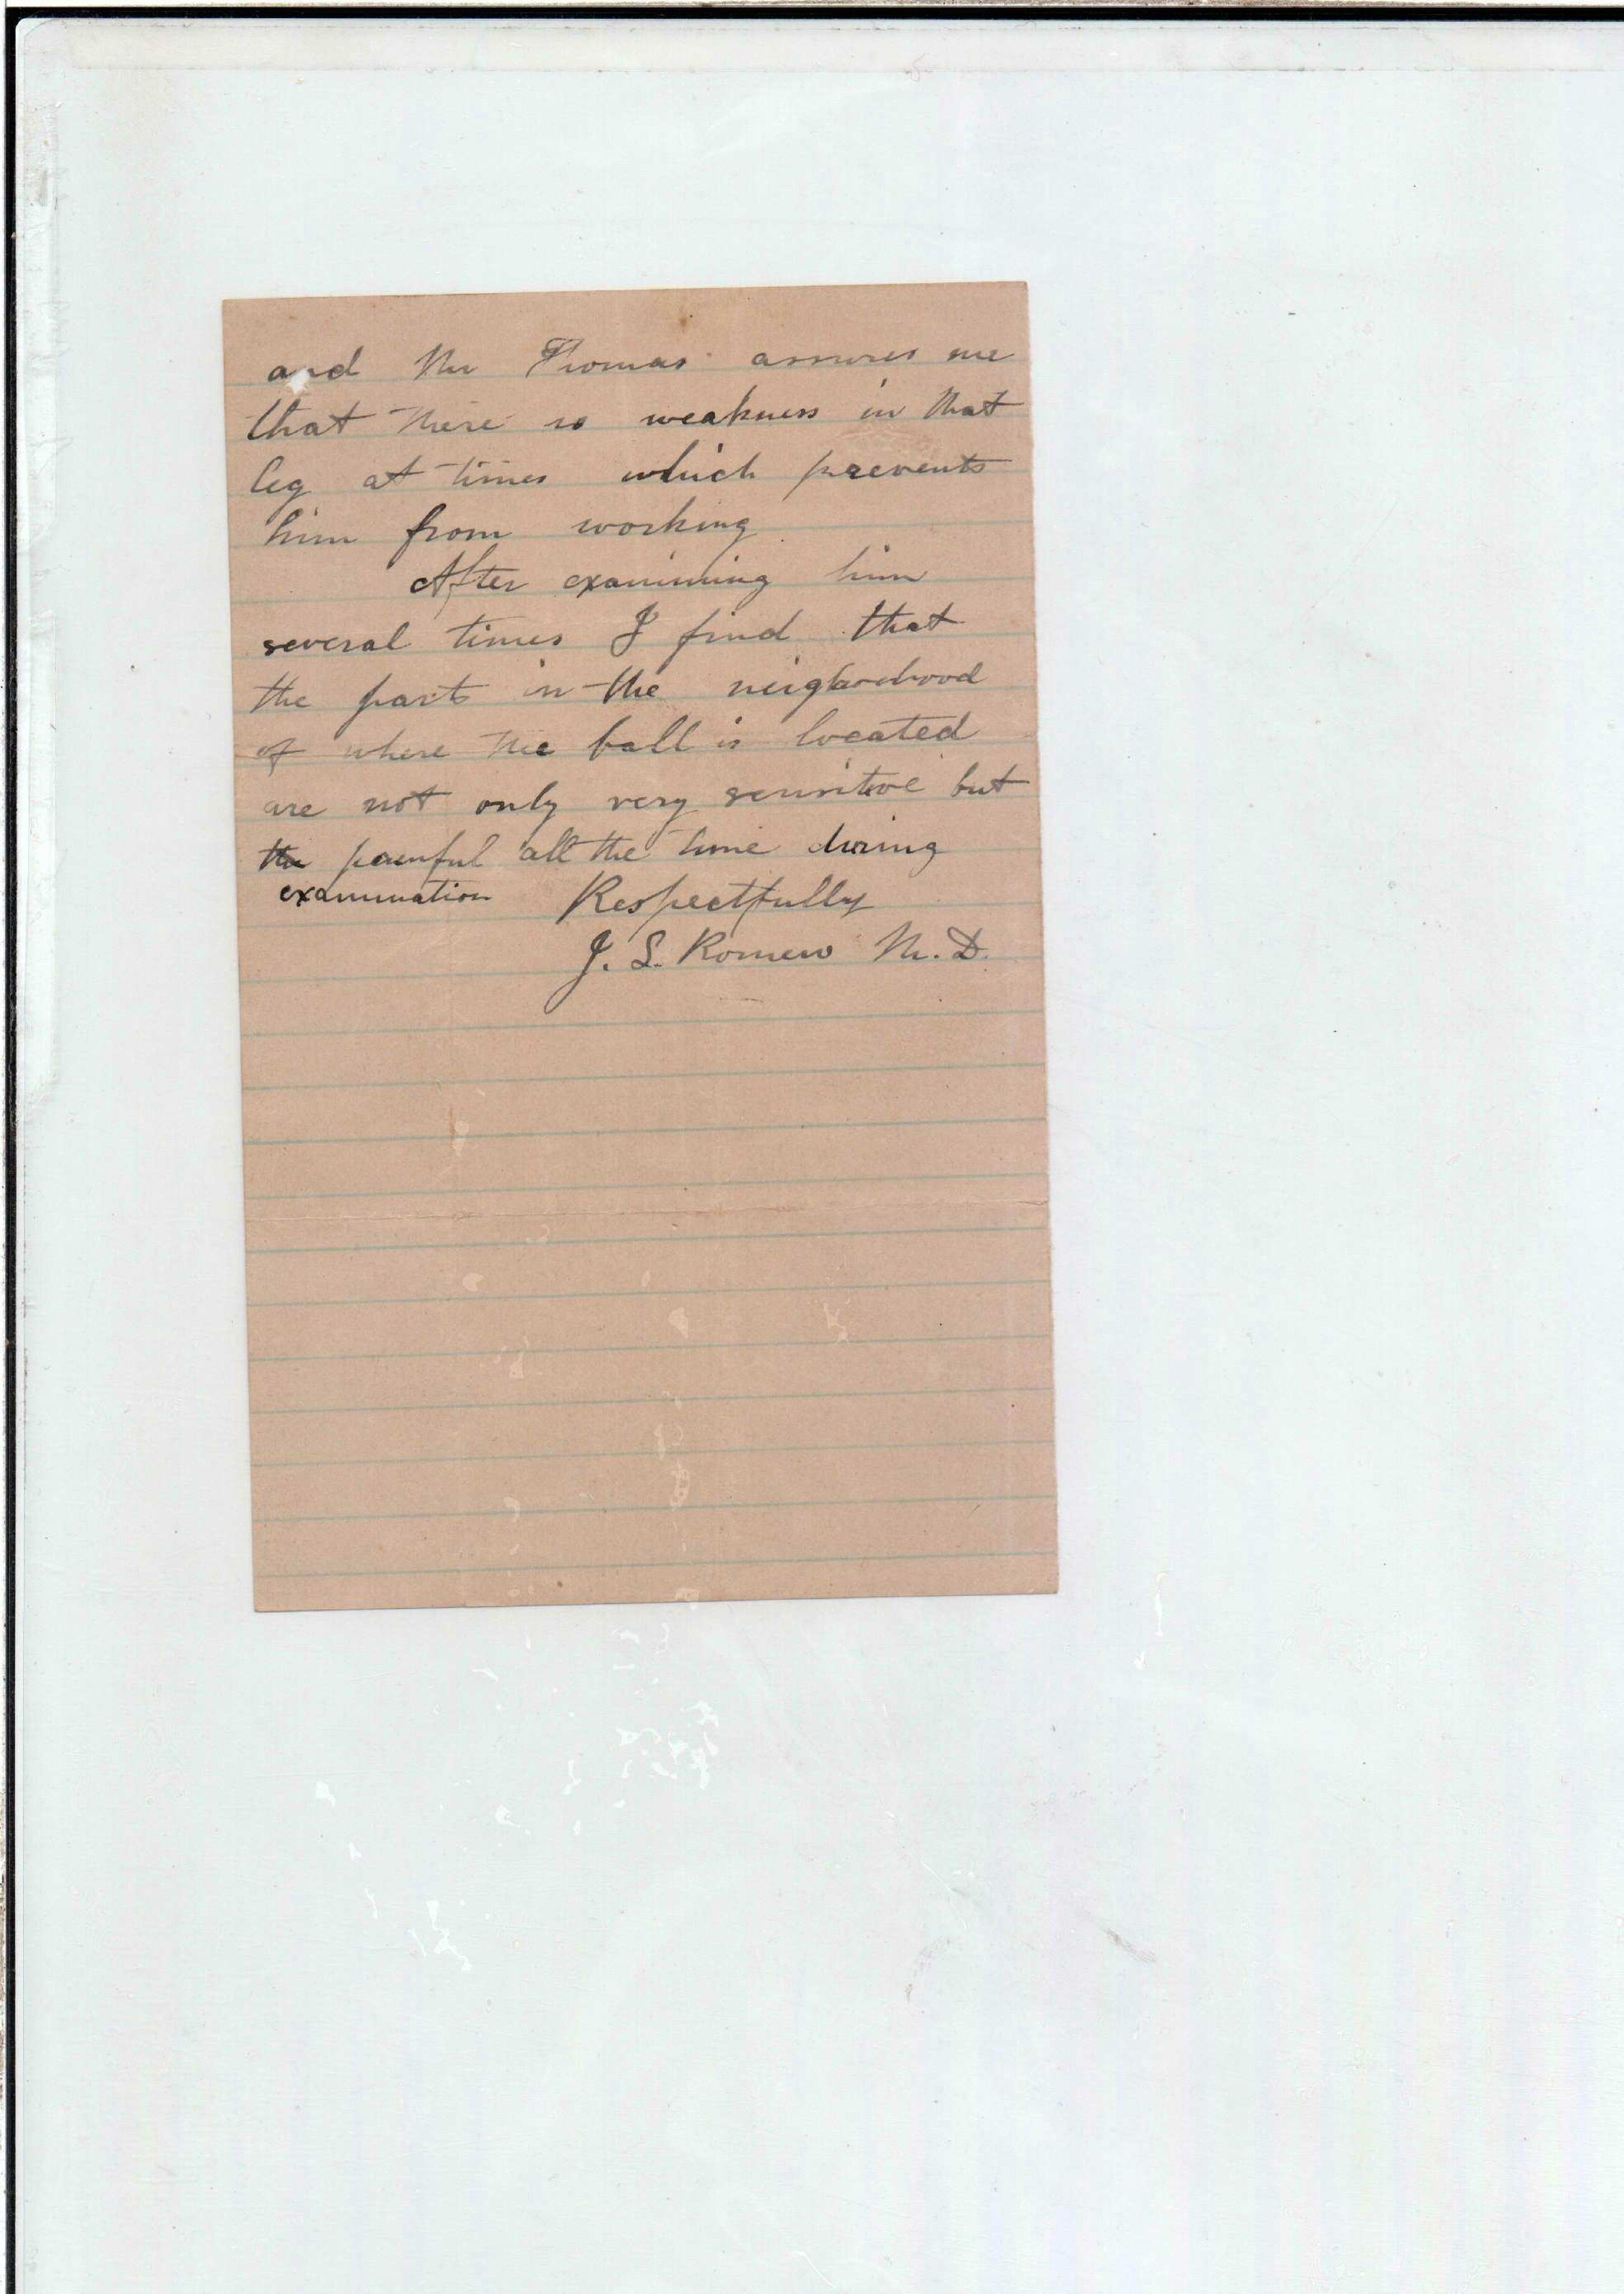 and Mr Thomas assures me
that there is weakness in that
leg at times which prevents
him from working
After examining him
several times I find that
the parts in the neighborhood
of where the ball is located
are not only very sensitive but
the painful all the time during
examination Respectfully
J. S. Romero M.D.